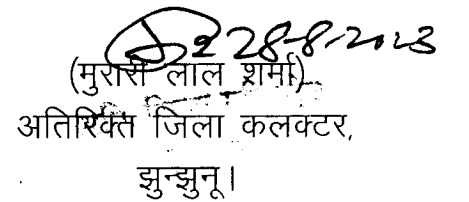 28-8-2023
(मुरारी लाल शर्मा)
अतिरिक्त जिला कलक्टर,
झुन्झुनू।